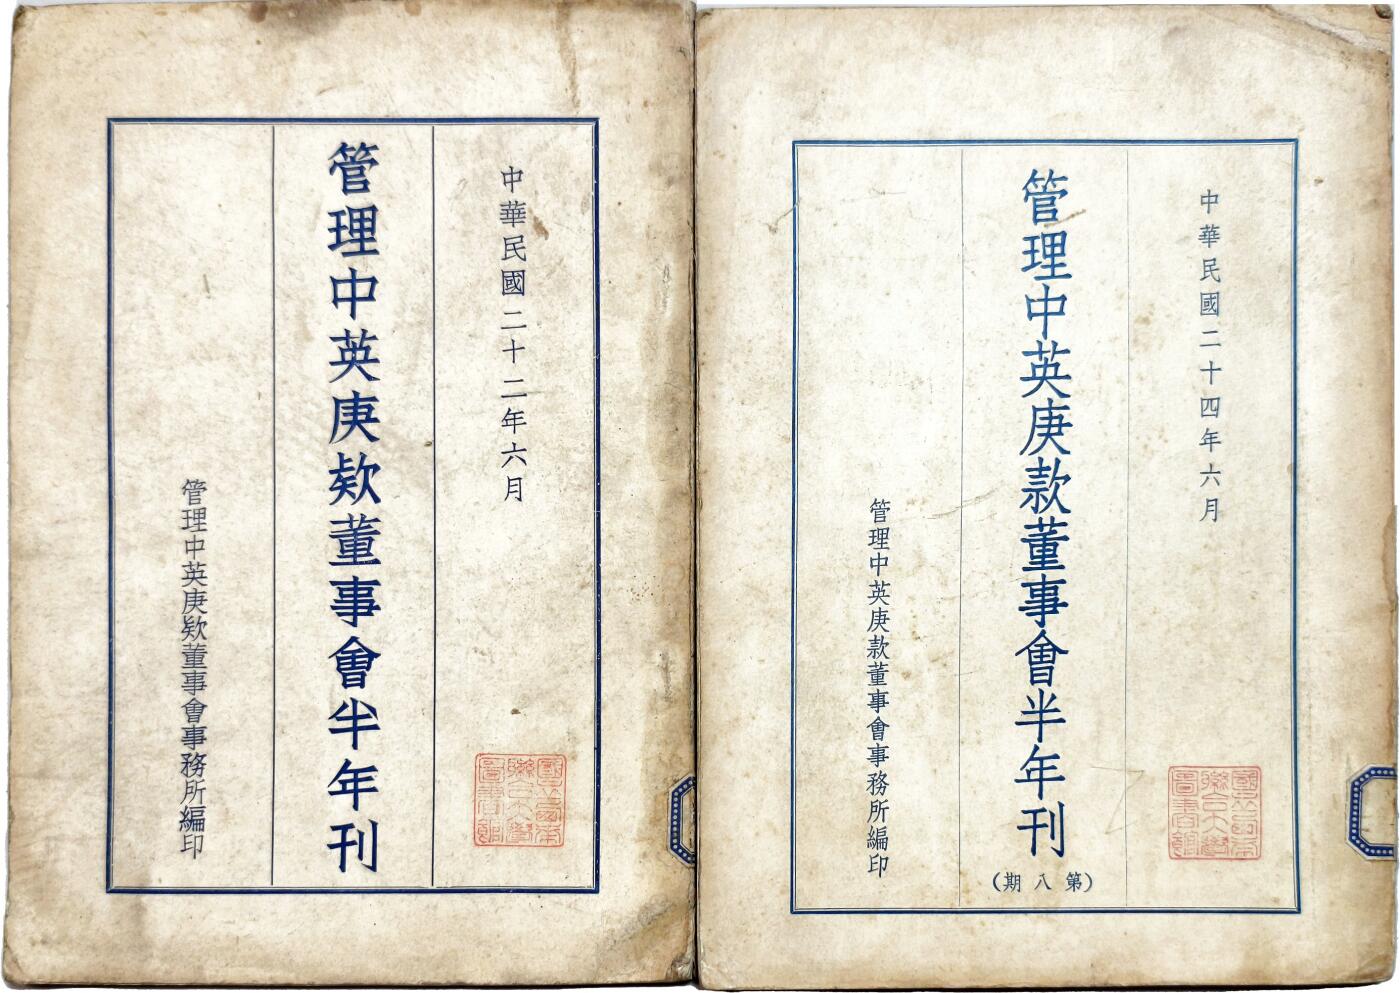 中華民國二十二年六月
管理中英庚欵董事會半年刊
管理中英庚欵董事會事務所編印
國立西南
聯合大學
圖書館
中華民國二十四年六月
管理中英庚款董事會半年刊
(第八期)
管理中英庚款董事會事務所編印
國立西南
聯合大學
圖書館